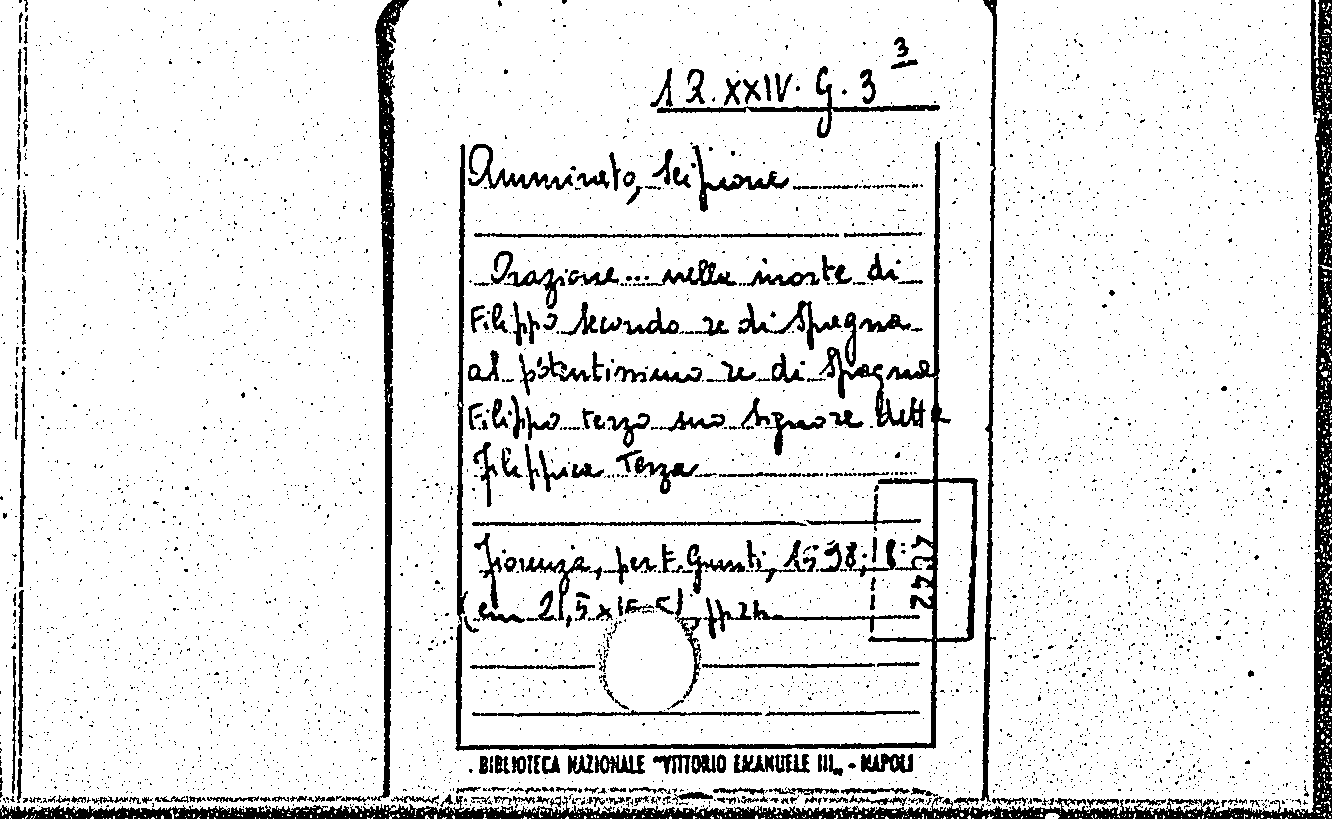 3
1R. XXIV. G. 3
Ammirato, Scipione
Orazione... nella morte di
Filippo secondo re di Spagna
al potentissimo re di Spagna
Filippo terzo suo signore detta
Filippica Terza
Fiorenza, per f. Giunti, 1598; 8°
(cm 21,5 x 15,5) pp 24.
BIBLIOTECA NAZIONALE "VITTORIO EMANUELE III„ - NAPOLI